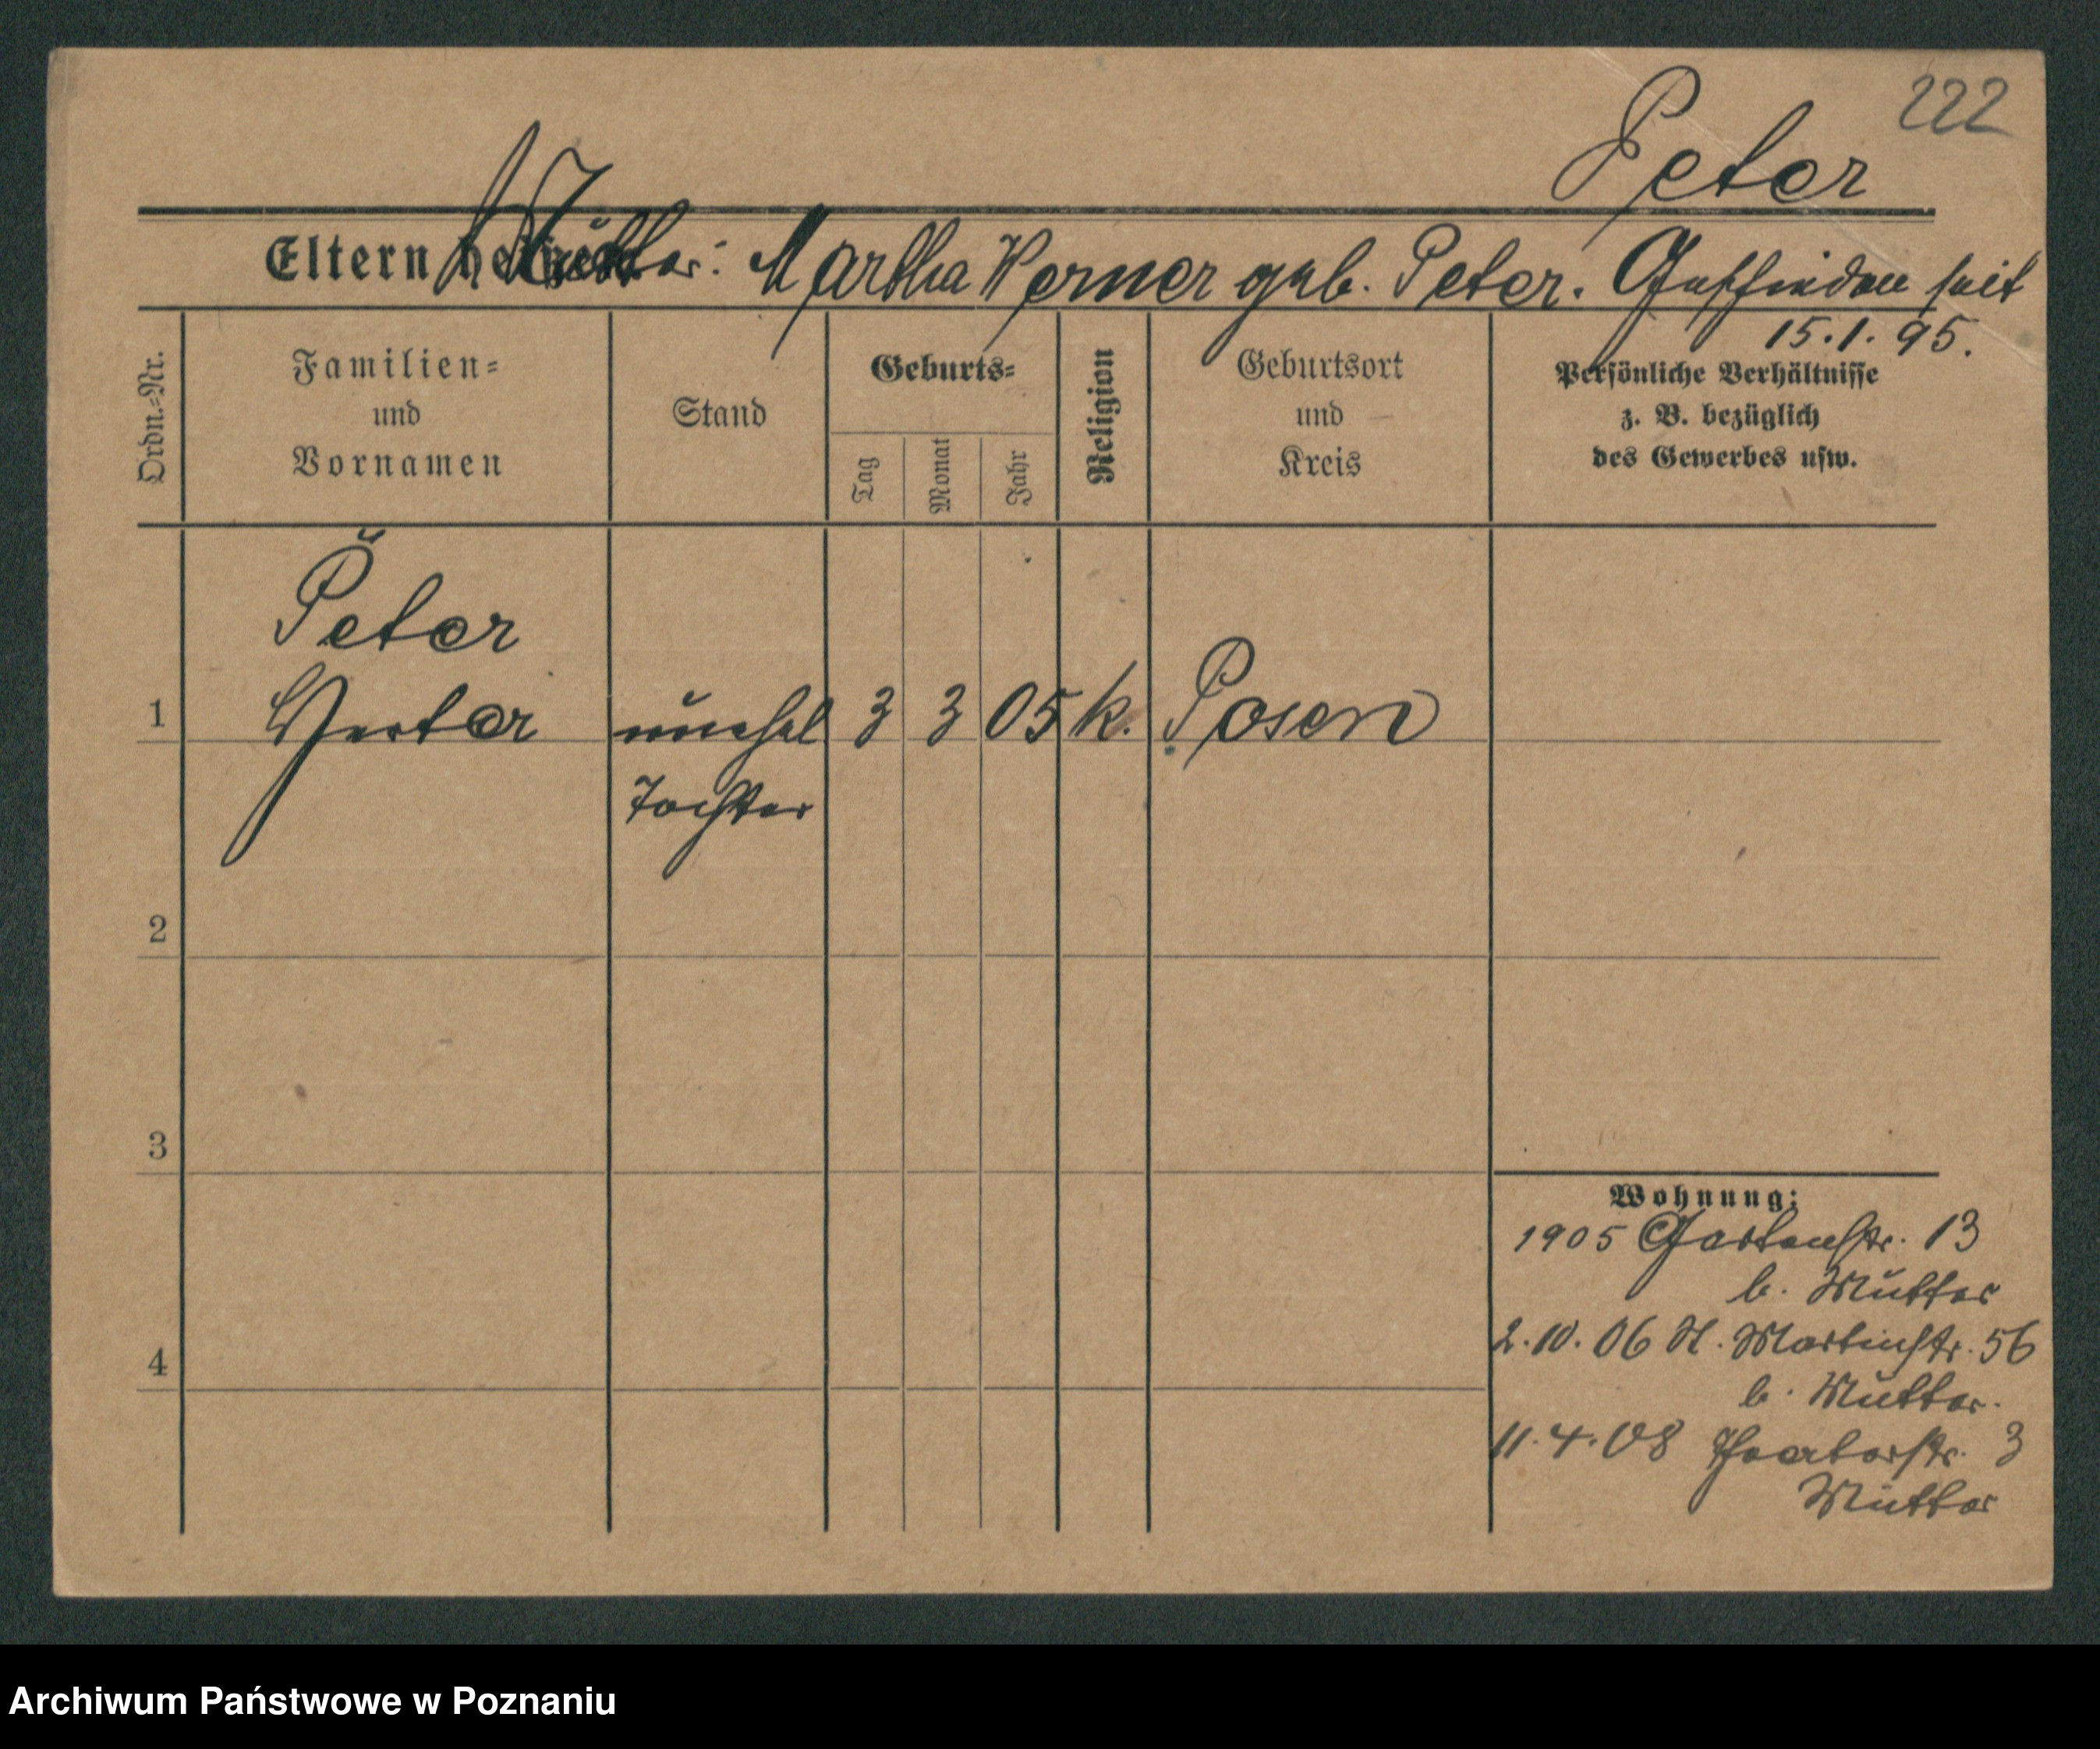 222
Peter
Eltern
Mutter: Martha Werner geb. Peter. Geschieden seit
15.1.95.
Ordn.=Nr.
Familien=
und
Vornamen
Stand
Geburts=
Tag
Monat
Jahr
Religion
Geburtsort
und
Kreis
Persönliche Verhältnisse
z. B. bezüglich
des Gewerbes usw.
Peter
1 unehel 3 3 05 k. Posen
Tochter
2
3
4
Wohnung:
1905 Gartenstr. 13
b. Mutter
2.10.06 St. Martinstr. 56
b. Mutter.
11.4.08 3
Mutter
Archiwum Państwowe w Poznaniu